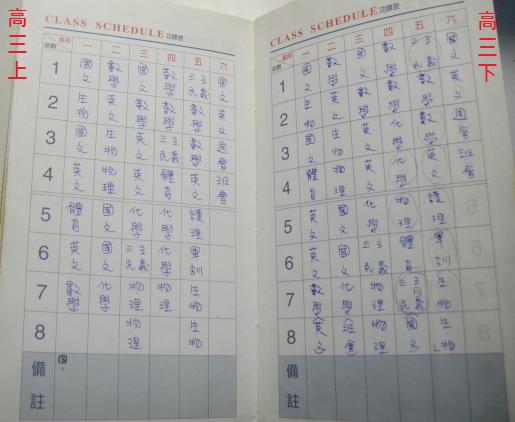 高三上
CLASS SCHEDULE 功課表
星期 一 二 三 四 五 六
節數
1 國文 數學 國文 數學 三民主義 國文
2 生物 英文 數學 數學 數學 英文
3 國文 生物 英文 三民主義 數學 週會
4 英文 物理 英文 體育 英文 班會
5 體育 國文 化學 化學 護理
6 英文 國文 三民主義 化學 軍訓
7 數學 化學 物理 物理 生物
8 物理 生物
備註 國
高三下
CLASS SCHEDULE 功課表
星期 一 二 三 四 五 六
節數
1 國文 數學 國文 數學 三民主義 國文
2 生物 英文 數學 數學 數學 英文
3 國文 生物 英文 化學 數學 週會
4 體育 物理 英文 (化學) 英文 班會
5 英文 國文 化學 物理 護理
6 英文 國文 三民主義 體育 軍訓
7 數學 化學 物理 三民主義 生物
8 (英文) (班會) 物理 國文 生物
備註